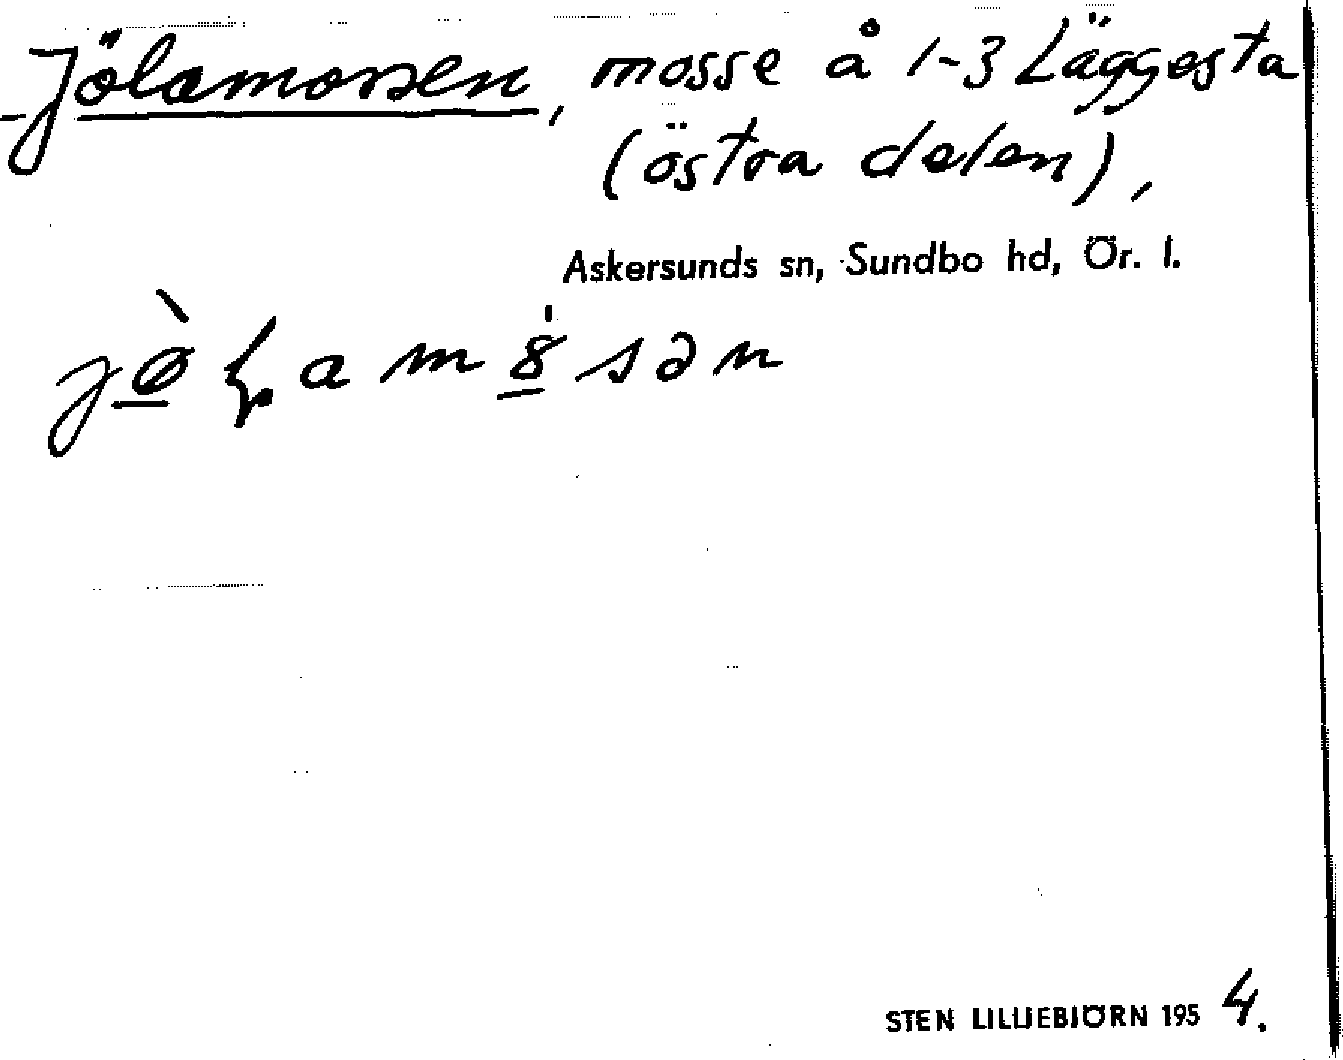 Jölamossen, mosse å 1-3 Läggesta
(östra delen),
Askersunds sn, Sundbo hd, Ör. l.
STEN LILLIEBJÖRN 1954.